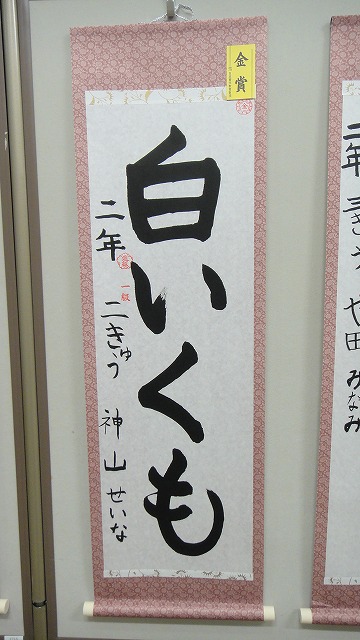 金賞
白いくも
二年
一級
二きゅう
神山せいな
二年
や田みなみ